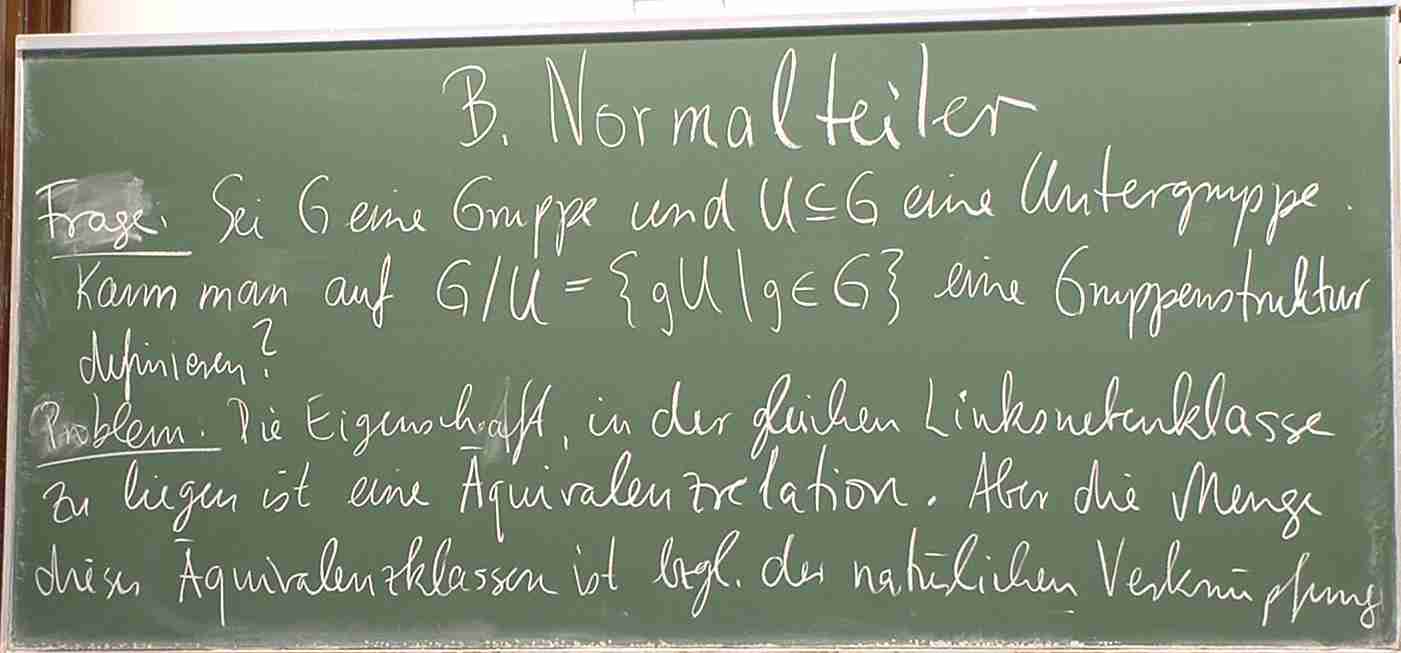 B. Normalteiler
Frage. Sei G eine Gruppe und U⊆G eine Untergruppe.
Kann man auf G/U = {gU | g∈G} eine Gruppenstruktur
definieren?
Problem. Die Eigenschaft, in der gleichen Linksnebenklasse
zu liegen ist eine Äquivalenzrelation. Aber die Menge
dieser Äquivalenzklassen ist bzgl. der natürlichen Verknüpfung